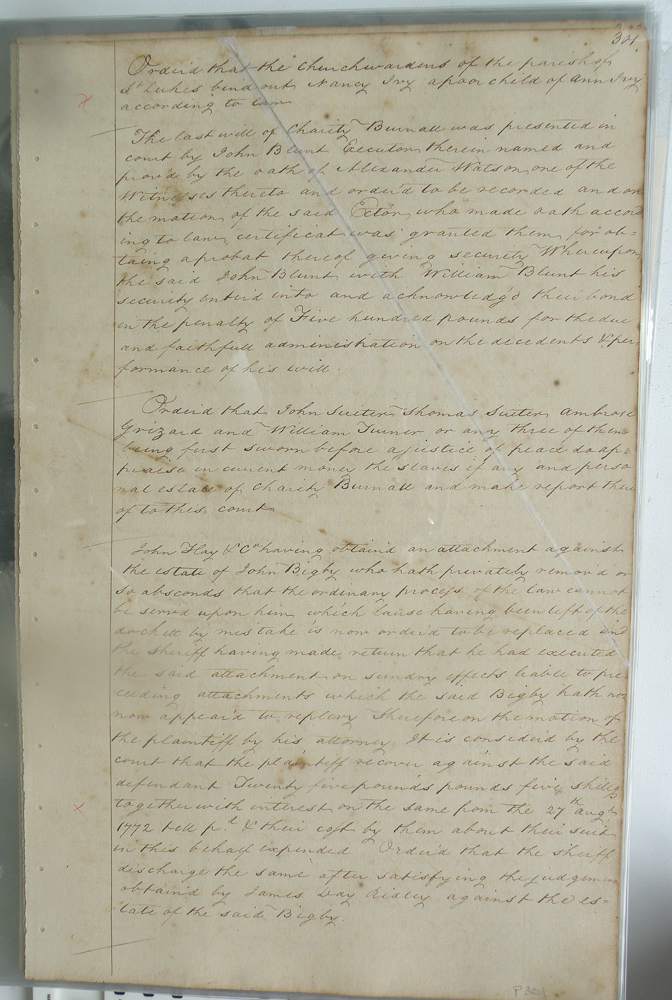 301
Orderd that the Churchwardens of the parish of
St Lukes bind out Nancy Ivy a poor child of Ann Ivy
according to law
The last will of Charity Burnall was presented in
court by John Blunt Executor therein named and
prov'd by the oath of Alexander Watson one of the
Witnesses thereto and order'd to be recorded and on
the motion of the said Exctor who made oath accord
ing to law certificat was granted them for ob=
taing a probat thereof giving security Whereupon
the said John Blunt with William Blunt his
security enterd into and acknowledg'd their bond
in the penalty of Five hundred pounds for the due
and faithfull administration on the decedents & per
formance of his will.
Orderd that John Suiter Thomas Suiter Ambrose
Grizard and William Turner or any three of them
being first sworn before a justice of peace do ap=
praise in current money the slaves if any and perso
nal estate of Charity Burnall and make report there
of to this court
John Hay & Co having obtaind an attachment against
the estate of John Bigby who hath privately remov'd or
so absconds that the ordinary process of the law cannot
be serv'd upon him which cause having been left of the
dockett by mistake is now order'd to be replaced and
the sheriff having made return that he had executed
the said attachment on sundry effects liable to pre
ceeding attachments which the said Bigby hath not
now appear'd to replevy Therefore on the motion of
the plaintiff by his attorney It is consider'd by the
court that the plaintiff recover against the said
defendant Twenty five pounds pounds five shillgs
together with interest on the same from the 27th augt
1772 till pd. & their cost by them about their suit
in this behalf expended Orderd that the sheriff
discharge the same after satisfying the judgement
obtaind by James Day Ridley against the es=
tate of the said Bigby.
P 301